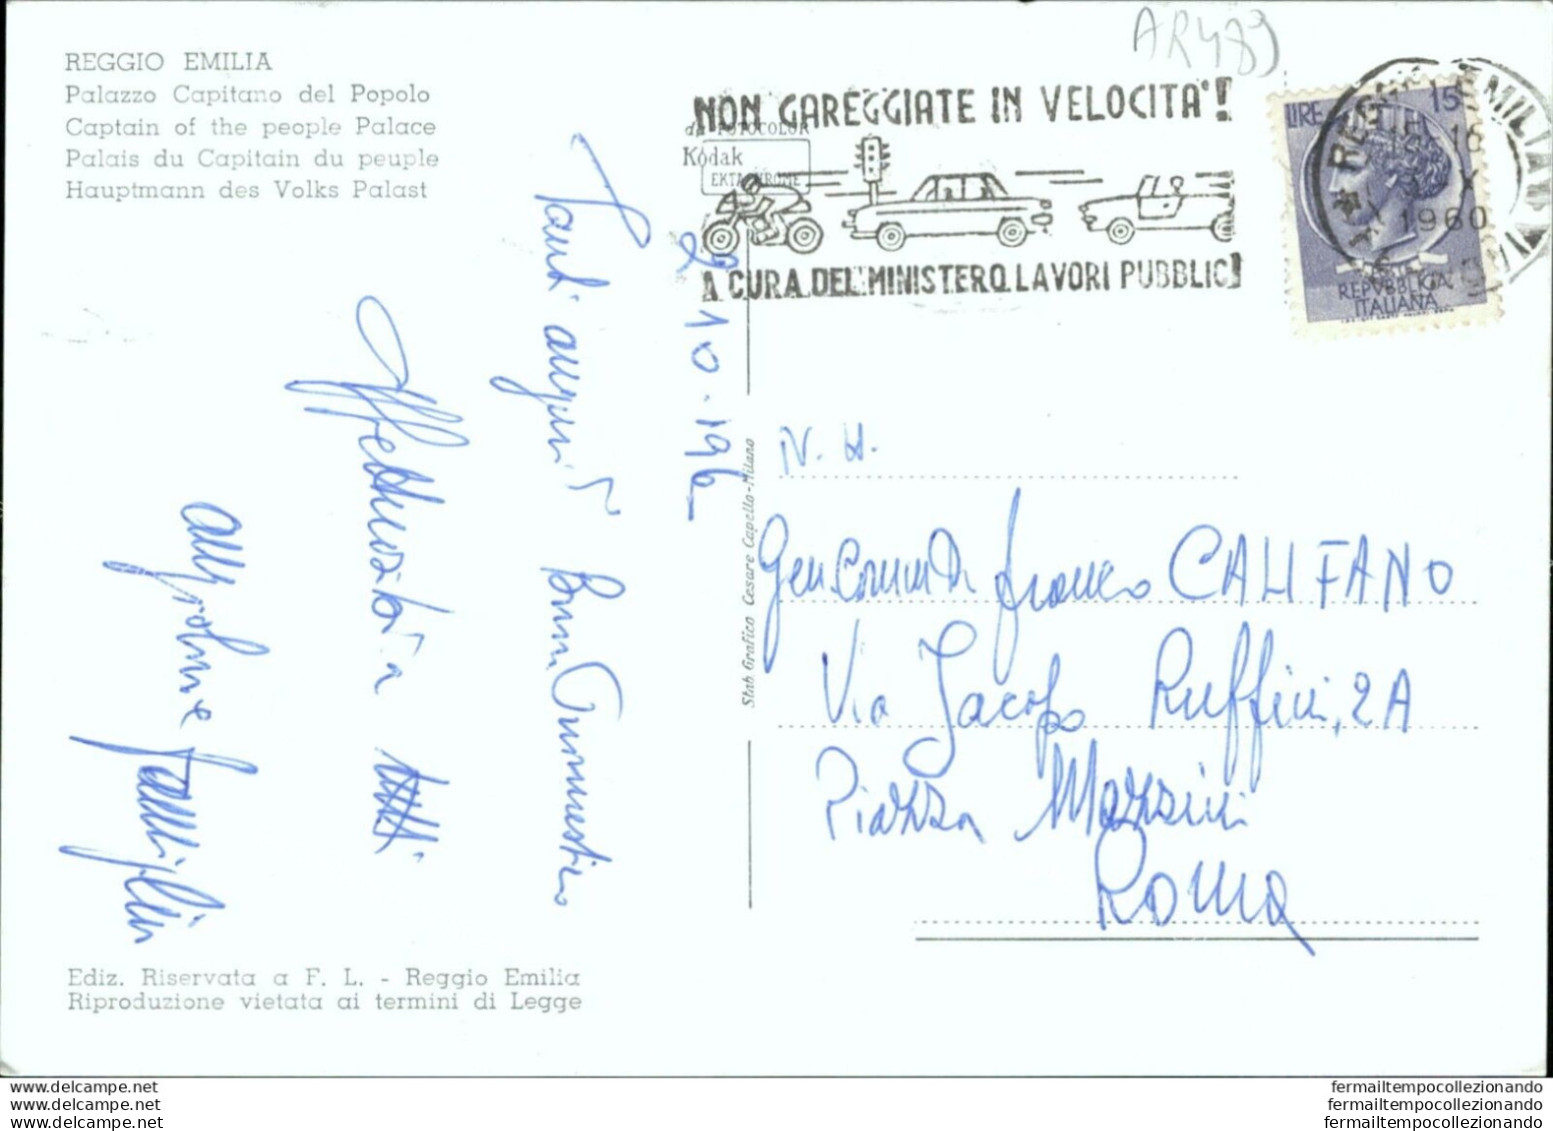 AR489
REGGIO EMILIA
Palazzo Capitano del Popolo
Captain of the people Palace
Palais du Capitain du peuple
Hauptmann des Volks Palast
NON GAREGGIATE IN VELOCITA'!
da FOTOCOLOR
Kodak
EKTACHROME
A CURA DEL MINISTERO LAVORI PUBBLICI
LIRE 15
REPVBBLICA
ITALIANA
REGGIO EMILIA
1960
2 10 - 196
Tanti auguri Buon Onomastico
Affettuosità a tutti
Stab. Grafico Cesare Capello-Milano
N. H.
Gen Comm Dr Franco CALIFANO
Via Jacopo Ruffini, 2A
Piazza Mazzini
Roma
Ediz. Riservata a F. L. - Reggio Emilia
Riproduzione vietata ai termini di Legge
www.delcampe.net
www.delcampe.net
www.delcampe.net
fermailtempocollezionando
fermailtempocollezionando
fermailtempocollezionando